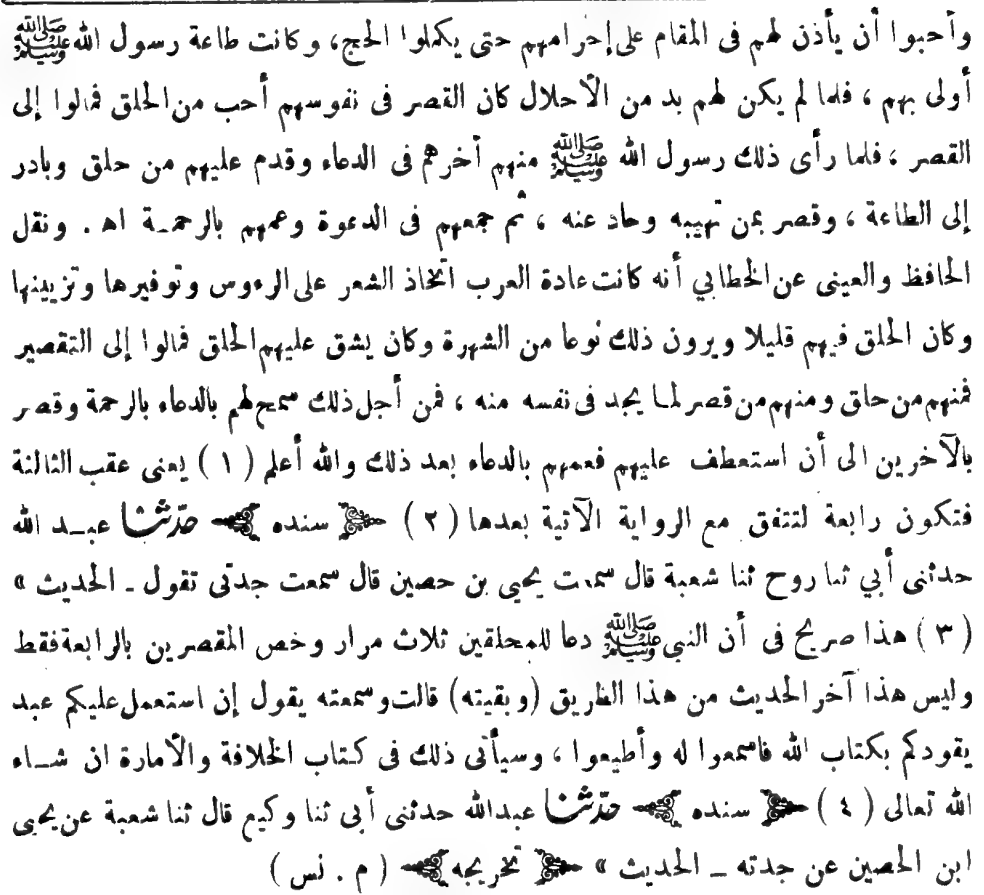 وأحبوا أن يأذن لهم فى المقام على إحرامهم حتى يكملوا الحج، وكانت طاعة رسول الله ﷺ
أولى بهم ، فلما لم يكن لهم بد من الأحلال كان القصر فى نفوسهم أحب من الحلق فمالوا إلى
القصر ، فلما رأى ذلك رسول الله ﷺ منهم أخرهم فى الدعاء وقدم عليهم من حلق وبادر
إلى الطاعة ، وقصر بمن تهيبه وحاد عنه ، ثم جمعهم فى الدعوة وعمهم بالرحمة اهـ . ونقل
الحافظ والعينى عن الخطابي أنه كانت عادة العرب اتخاذ الشعر على الرءوس وتوفيرها وتزيينها
وكان الحلق فيهم قليلا ويرون ذلك نوعا من الشهرة وكان يشق عليهم الحلق فمالوا إلى التقصير
فمنهم من حلق ومنهم من قصر لما يجد فى نفسه منه ، فمن أجل ذلك سمح لهم بالدعاء بالرحمة وقصر
بالآخرين الى أن استعطف عليهم فعمهم بالدعاء بعد ذلك والله أعلم (١) يعنى عقب الثالثة
فتكون رابعة لتتفق مع الرواية الآتية بعدها (٢) ﴿ سنده ﴾ حدثنا عبد الله
حدثنى أبي ثنا روح ثنا شعبة قال سمعت يحيى بن حصين قال سمعت جدتى تقول ـ الحديث »
(٣) هذا صريح فى أن النبي ﷺ دعا للمحلقين ثلاث مرار وخص المقصرين بالرابعة فقط
وليس هذا آخر الحديث من هذا الطريق (وبقيته) قالت وسمعته يقول إن استعمل عليكم عبد
يقودكم بكتاب الله فاسمعوا له وأطيعوا ، وسيأتى ذلك فى كتاب الخلافة والأمارة ان شاء
الله تعالى (٤) ﴿ سنده ﴾ حدثنا عبدالله حدثنى أبى ثنا وكيع قال ثنا شعبة عن يحيى
ابن الحصين عن جدته ـ الحديث » ﴿ تخريجه ﴾ (م . نس)